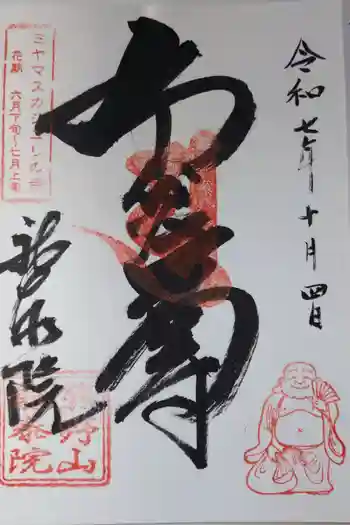 令和七年十月四日
布袋尊
ミヤマスカシユリの寺
花期 六月下旬～七月上旬
院
野山
院